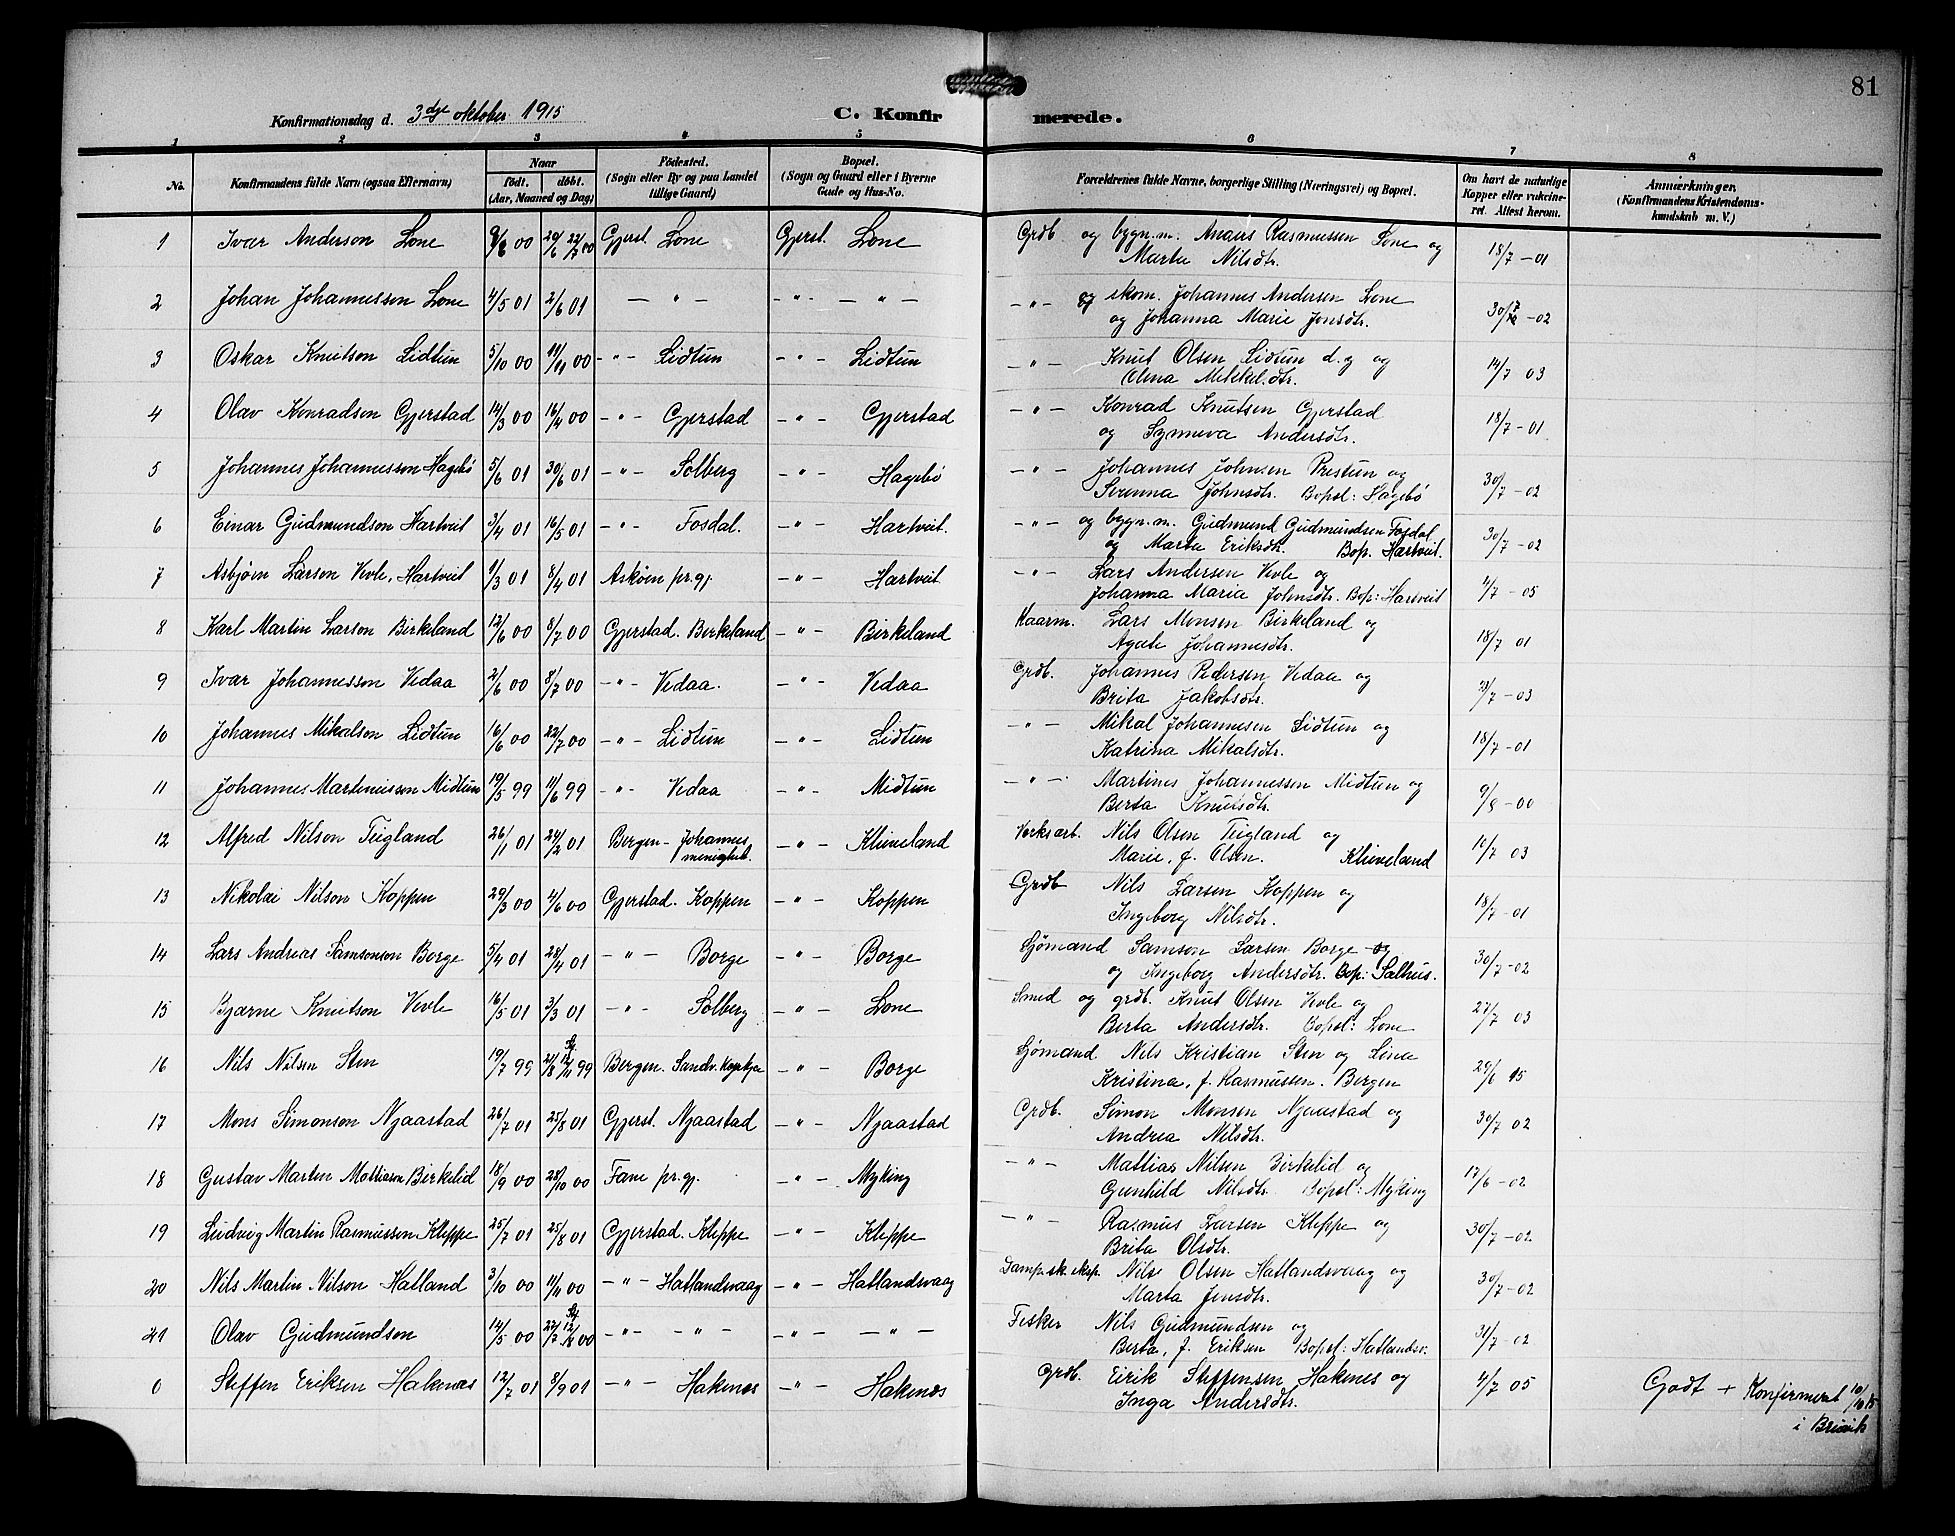 81
Konfirmationsdag d. 3dje oktober 1915 C. Konfir merede.
1 2 3 4 5 6 7 8
No. Konfirmandens fulde Navn (ogsaa Efternavn) Naar født. døbt. (Aar, Maaned og Dag) Fødested. (Sogn eller By og paa Landet tillige Gaard) Bopæl. (Sogn og Gaard eller i Byerne Gade og Hus-No. Forældrenes fulde Navne, borgerlige Stilling (Næringsvei) og Bopæl. Om havt de naturlige Kopper eller vakcineret. Attest herom. Anmærkninger. (Konfirmandens Kristendomskundskab m. V.)
1 Ivar Anderson Lone 00 20/6 22/7 00 Gjerst. Lone Gjerst. Lone Grdb. og bygn.m. Anders Rasmussen Lone og 18/7 -01
Marta Nilsdtr.
2 Johan Johannesson Lone 4/5 01 2/6 01 - " - - " - - " - - " - og skom. Johannes Andersen Lone 30/7 -02
og Johanna Marie Jonsdtr.
3 Oskar Knutson Lidtun 5/10 00 11/11 00 - " - Lidtun - " - Lidtun - " - Knut Olsen Lidtun d.y og 14/7 03
Olina Mikkelsdtr.
4 Olav Konradson Gjerstad 14/3 00 16/4 00 - " - Gjerstad - " - Gjerstad - " - Konrad Knutsen Gjerstad 18/7 -01
og Synneva Andersdtr.
5 Johannes Johannesson Hagebø 5/6 01 30/6 01 - " - Solberg - " - Hagebø - " - Johannes Johnsen Prestun og 30/7 -02
Johnsdtr. Bopel: Hagebø
6 Einar Gudmundson Hartveit 3/4 01 16/5 01 - " - Fosdal. - " - Hartveit. - " - og bygn.m. Gudmund Gudmundsen Fosdal 30/7 -02
og Marta Eriksdtr. Bop. Hartveit.
7 Asbjørn Larson Vevle, Hartveit 1/3 01 8/4 01 Askøen pr.gj. - " - Hartveit - " - Lars Andersen Vevle og 4/7 -05
Johanna Maria Johnsdtr. Bop: Hartveit
8 Karl Martin Larson Birkeland 12/6 00 8/7 00 Gjerstad. Birkeland - " - Birkeland Haarm. Lars Monsen Birkeland og 18/7 01
Agate Johannesdtr.
9 Ivar Johannesson Vedaa 2/6 00 8/7 00 - " - Vedaa. - " - Vedaa Grdb. Johannes Pedersen Vedaa og /7 -03
Brita Jakobsdtr.
10 Johannes Mikalson Lidtun 16/6 00 22/7 00 - " - Lidtun - " - Lidtun - " - Mikal Johannesen Lidtun og 18/7 -01
Katrina Mikalsdtr.
11 Johannes Martinusson Midtun 19/5 99 11/6 99 - " - Vedaa - " - Midtun - " - Martines Johannessen Midtun og 9/8 -00
Berta Knutsdtr.
12 Alfred Nilson Teigland 26/1 01 24/2 01 Bergen - Johannes menighet. - " - Klieveland Verksarb. Nils Olsen Teigland og /7 03
Marie, f. Olsen. Klieveland
13 Nikolai Nilson Koppen 29/3 00 4/6 00 Gjerstad. Koppen - " - Koppen Grdb. Nils Larsen Koppen og 18/7 -01
Ingeborg Nilsdtr.
14 Lars Andreas Samsonson Borge 5/4 01 28/4 01 - " - Borge - " - Borge Sjømand Samson Larsen Borge og 30/7 -02
og Ingeborg Andersdtr. Bop: Salhus.
15 Bjarne Knutson Vevle 16/5 01 3/3 01 - " - Solberg - " - Lone Smed og grdb. Knut Olsen Vevle og 27/7 03
Berta Andersdtr. Bopel: Lone
16 Nils Nilsen Sten 19/7 99 21/8 12/11 99 Bergen. Sandv. - " - Borge Sjømand. Nils Kristian Sten og Lina 29/6 15
Kristina, f. Rasmussen. Bergen
17 Mons Simonson Njaastad 26/7 01 25/8 01 Gjerst. Njaastad - " - Njaastad Grdb. Simon Monsen Njaastad og 30/7 02
Andrea Nilsdtr.
18 Gustav Martin Mattiason Birkelid 18/9 00 28/10 00 Fane pr.gj. - " - Myking - " - Mattias Nilsen Birkelid og 17/6 -02
Gunhild Nilsdtr. Bopel: Myking
19 Ludvig Martin Rasmusson Kleppe 25/7 01 25/8 01 Gjerstad. Kleppe - " - Kleppe - " - Rasmus Larsen Kleppe og 30/7 -02
Brita Olsdtr.
20 Nils Martin Nilson Hatland 3/10 00 11/11 00 - " - Hatlandsvaag - " - Hatlandsvaag Damp.sk.eksp. Nils Olsen Hatlandsvaag og 30/7 -02
Marta Jensdtr.
21 Olav Gudmundson 14/5 00 22/7 00 - " - - " - - " - - " - Fisker Nils Gudmundsen og 31/7 -02
Berta, f. Eriksen Bopel: Hatlandsv.
0 Steffen Eriksen Hakenæs 12/7 01 8/9 01 - " - Hakenes - " - Hakenæs Grdb. Eirik Steffensen Hakenes og 4/7 05 Godt + Konfirmert 10/10 15
Inga Andersdtr. i Breivik